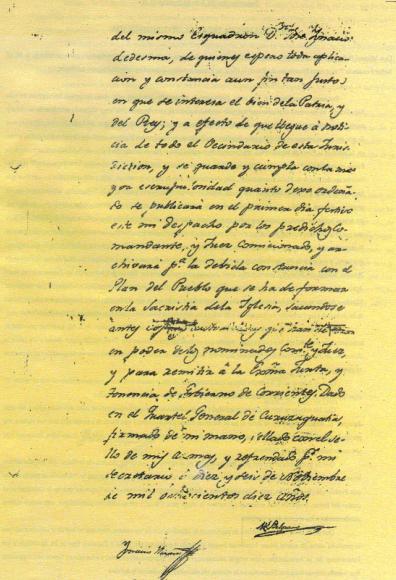 del mismo Esquadron D.n Jph. Ignacio
Ledesma, de quienes espero toda aplica-
cion y constancia a un fin tan justo,
en que se interesa el bien de la Patria, y
del Rey; y a efecto de que llegue á noti-
cia de todo el Vecindario de esta Juris-
diccion, y se guarde y cumpla con la ma-
yor escrupulosidad quanto dexo ordena-
do se publicará en el primer dia festivo
este mi despacho por los predichos Co-
mandante, y Juez comisionado, y ar-
chivará p.a la debida constancia con el
Plan del Pueblo que se ha de formar
en la Sacristia de la Iglesia, sacandose
antes copias que han de
en poder de los nominados Com.te y Juez,
y para remitir á la Junta, y
Tenencia de Gobierno de Corrientes. Dado
en el Quartel General de Curuzuquatia,
firmado de mi mano, sellado con el se-
llo de mis armas, y refrendado p.r mi
Secretario á diez y seis de Noviembre
de mil ochocientos diez años.
M.l Belgrano